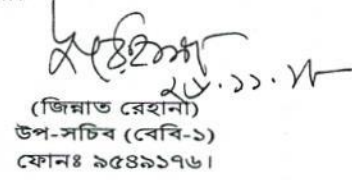 ২৮.১১.১৮
(জিন্নাত রেহানা)
উপ-সচিব (বেবি-১)
ফোনঃ ৯৫৪৯১৭৬।